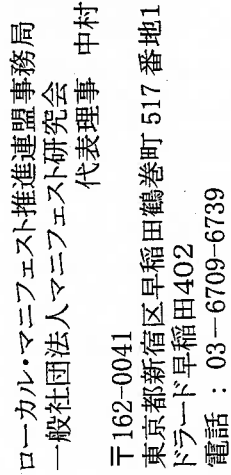 ローカル・マニフェスト推進連盟事務局
一般社団法人マニフェスト研究会
代表理事 中村
〒162-0041
東京都新宿区早稲田鶴巻町 517 番地1
ドラード早稲田402
電話 : 03-6709-6739